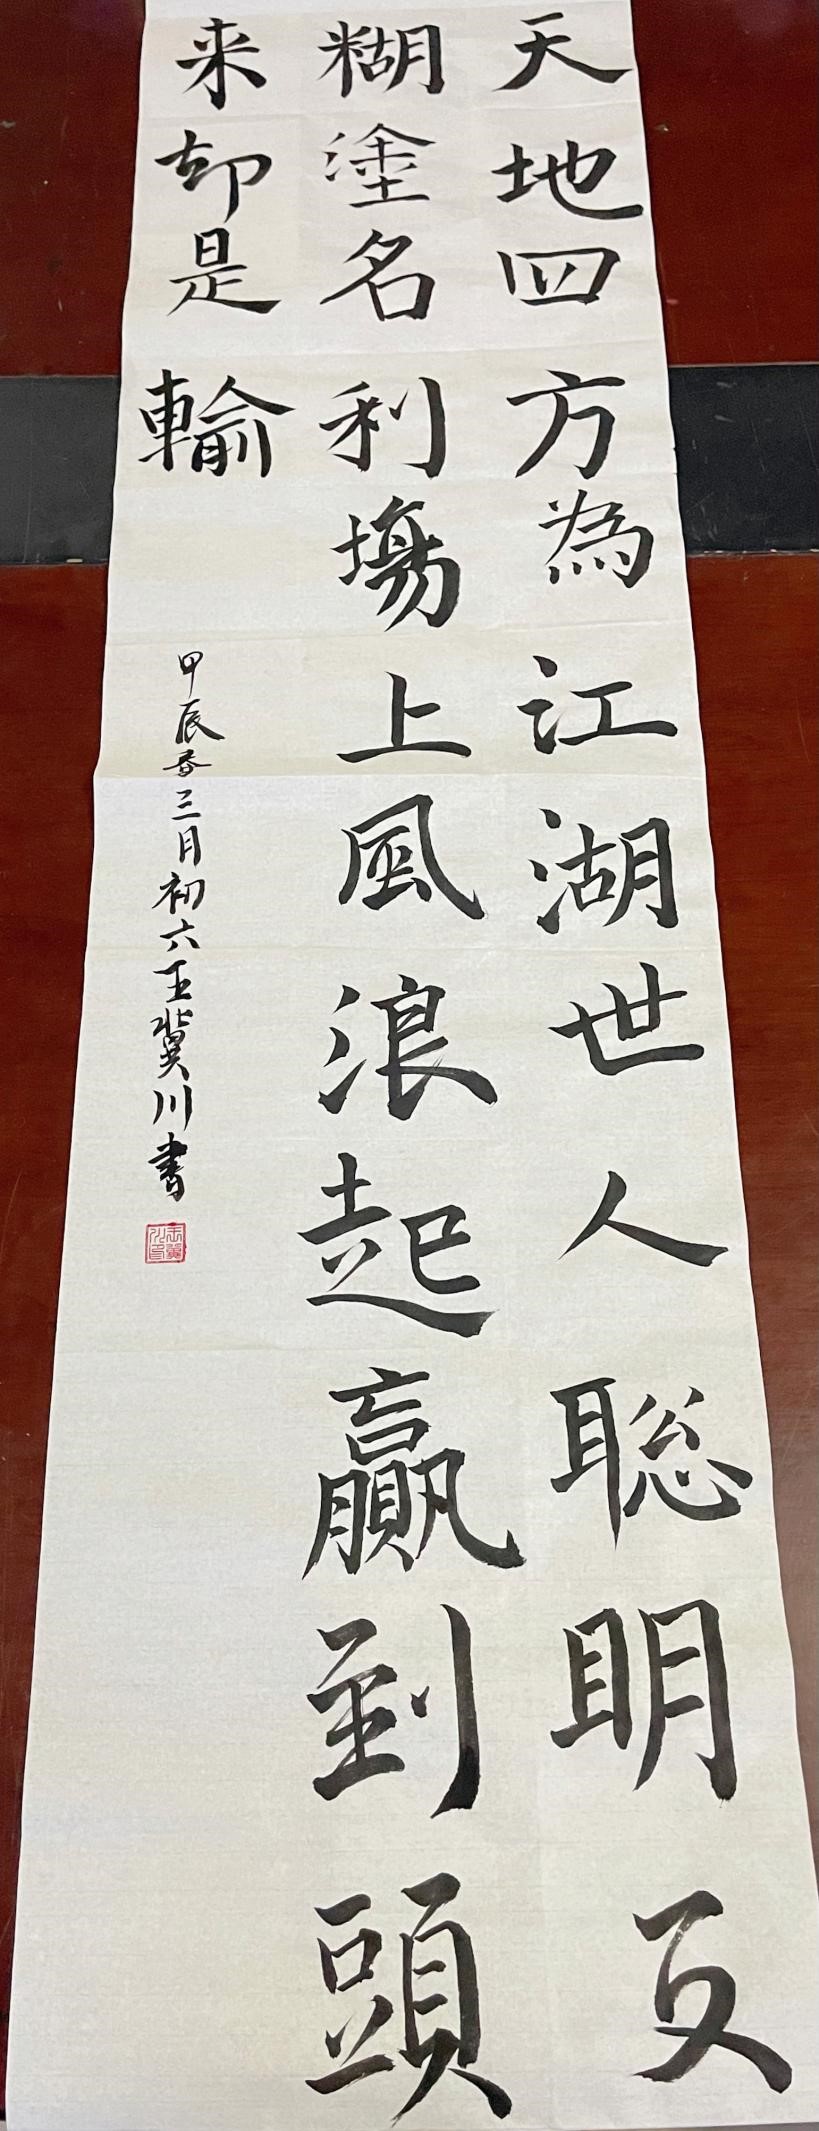 天地四方為江湖世人聪明反
糊塗名利場上風浪起贏到頭
来却是輸
甲辰春三月初六王冀川書